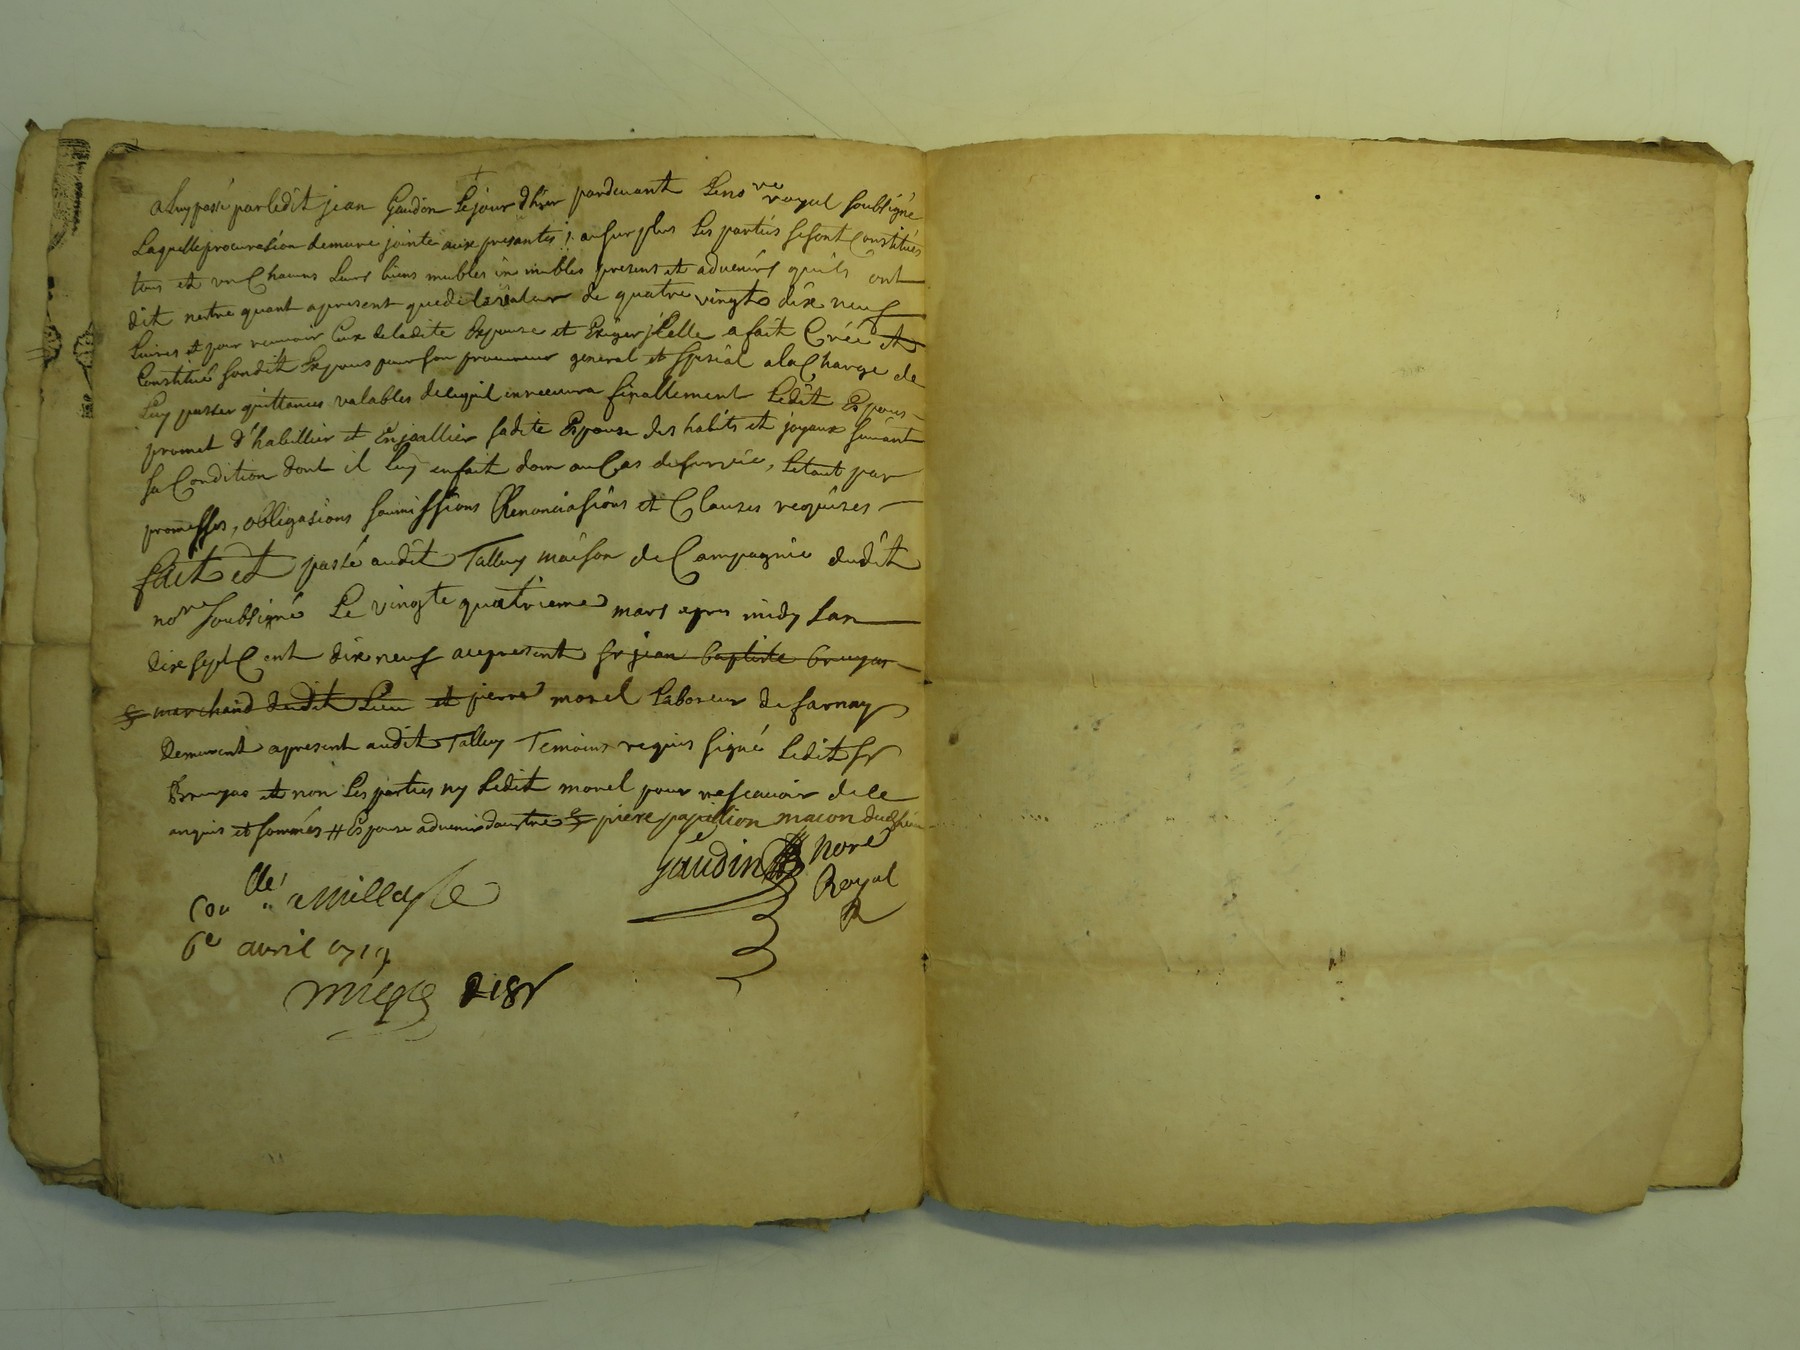 a luy passé par ledit jean Gaudon le jour d'hier pardevant le no.re royal soubsigné
Laquelle procurasion demeure jointe aux presantes ; au surplus Les parties se sont Constitués
tous et un Chacuns Leurs biens meubles immeubles present et advenirs quils ont
dit nestre quant apresent que de la valeur de quatre vingts dix neuf
Livres et pour recevoir Ceux de ladite Espouse et Exiger jcelle a fait Créé et
Constitué sondit Espoux pour son procureur general et spesial a la Charge de
Luy passer quittances valables de ce quil en recevra finallement Ledit Espoux
promet d'habillier et Enjoallier sadite Espouse des habits et joyaux suivant
sa Condition dont il luy en fait don au Cas de survie, Le tout par
promesses, obligasions soumissions Renonciasions et Clauses requises
fait et passé audit Talluy maison de Campagnie dudit
no.re soubsigné Le vingte quatrieme mars apres midy Lan
dix sept Cent dix neuf au present sr jean baptiste bruyas
marchand dudit Lieu et pierre morel Laboreur de farnay
demeurent apresent audit Talluy Temoins requis signé Ledit sr
Bruyas et non Les parties ny Ledit morel pour ne scavoir de ce
enquis et sommés # Espouse advenir dautre piere papillion macon dud lieu
Gaudin nore
Royal
R
Con.llé a
6e avril 1719